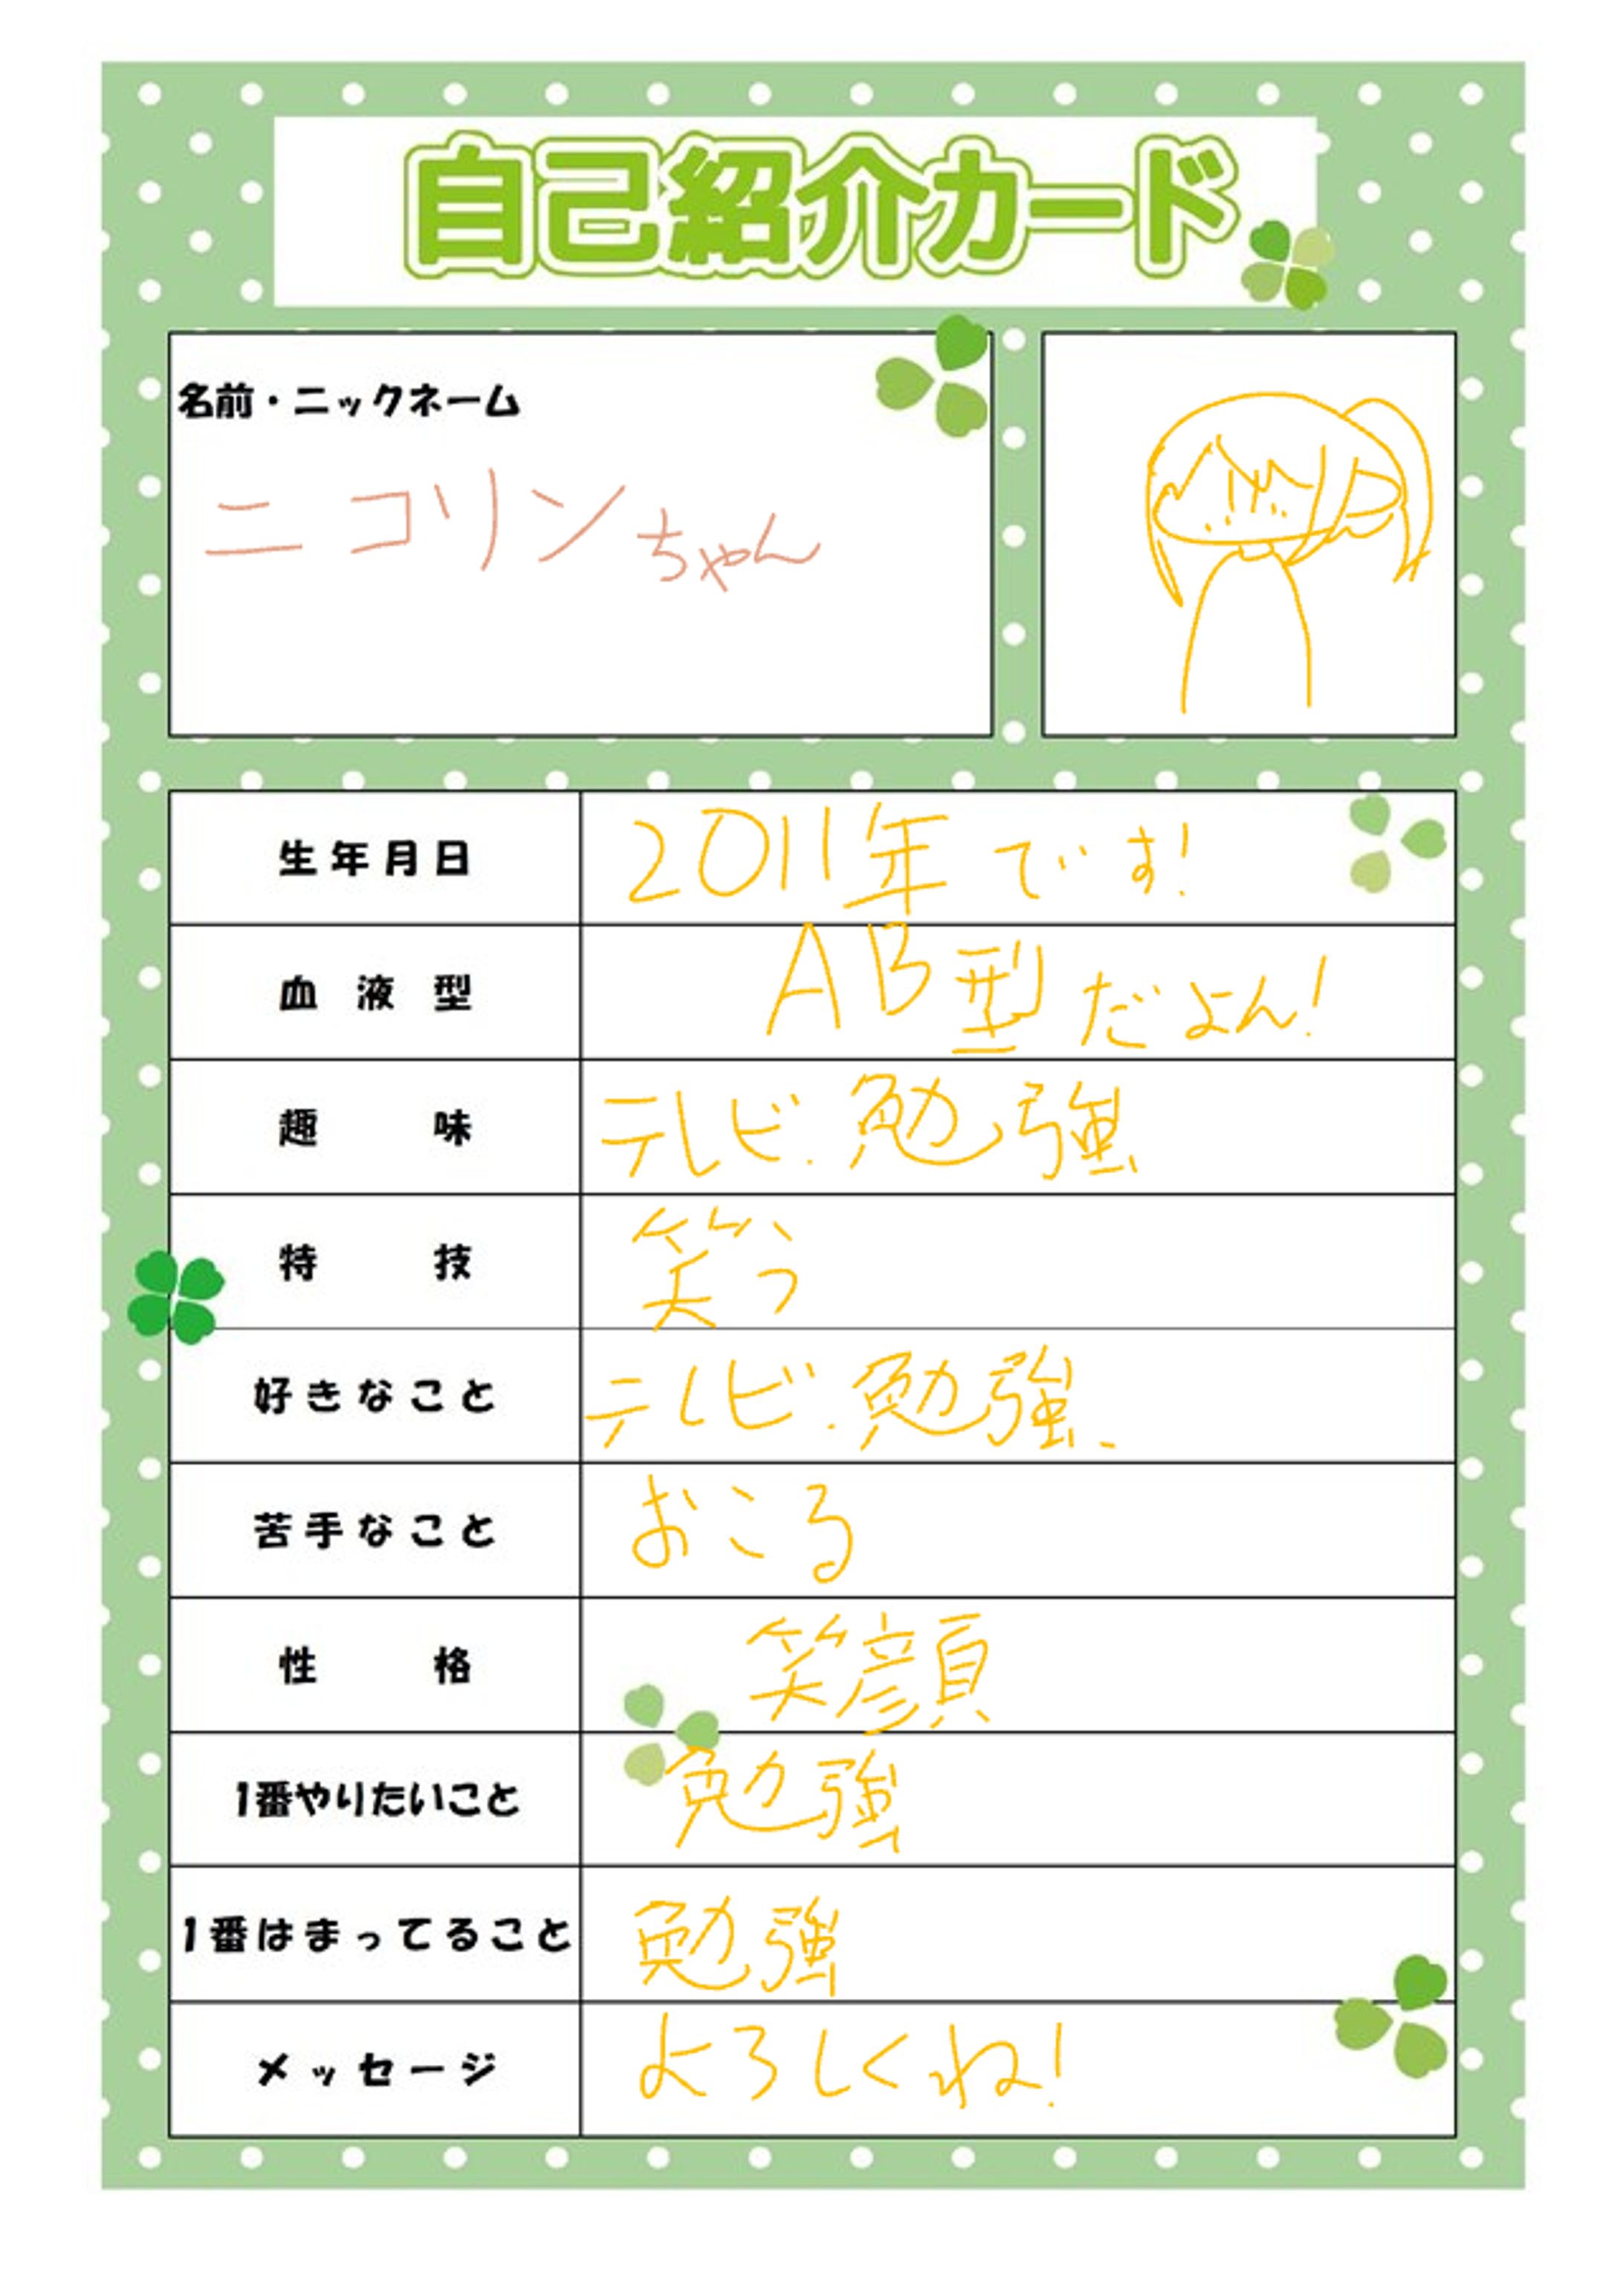 自己紹介カード
名前・ニックネーム
ニコリンちゃん
生年月日 2011年です!
血液型 AB型だよん!
趣味 テレビ.勉強
特技 笑う
好きなこと テレビ.勉強、
苦手なこと おこる
性格 笑顔
1番やりたいこと 勉強
1番はまってること 勉強
メッセージ よろしくね!